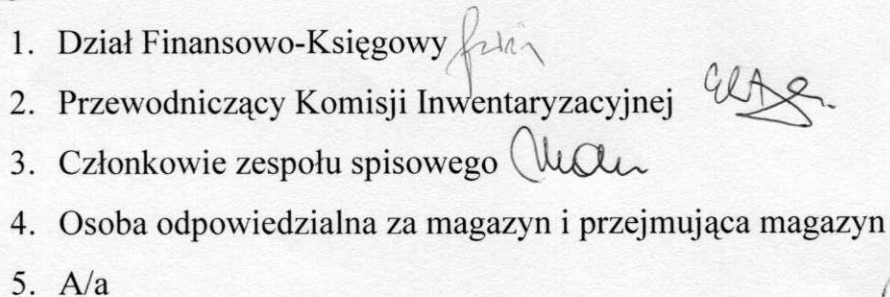 1. Dział Finansowo-Księgowy
2. Przewodniczący Komisji Inwentaryzacyjnej
3. Członkowie zespołu spisowego
4. Osoba odpowiedzialna za magazyn i przejmująca magazyn
5. A/a